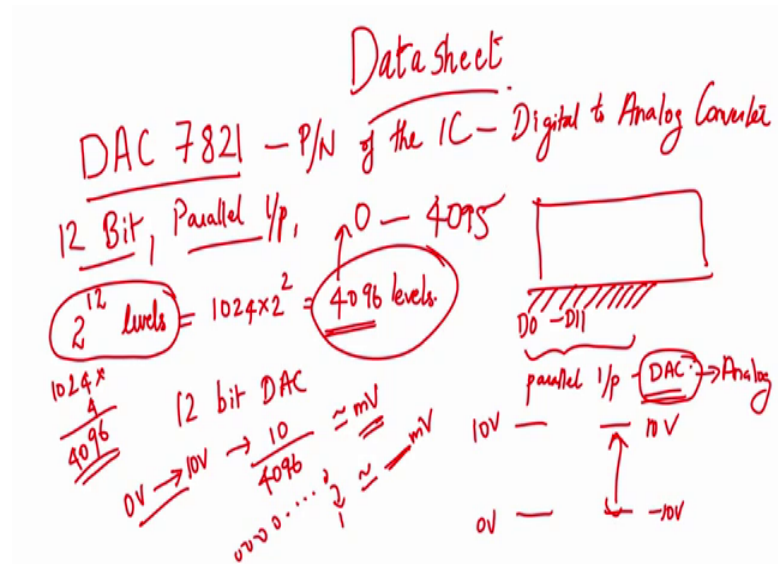 Datasheet
DAC 7821 - P/N of the IC - Digital to Analog Converter
12 Bit, Parallel I/p,
0 - 4095
2^12 levels = 1024×2^2 = 4096 levels.
1024×
4
4096
D0 - D11
parallel I/p - DAC → Analog
12 bit DAC
0V → 10V → 10/4096 ≃ mV
0000.....0
1
≃ — mV
10V — — 10V
0V — — -10V